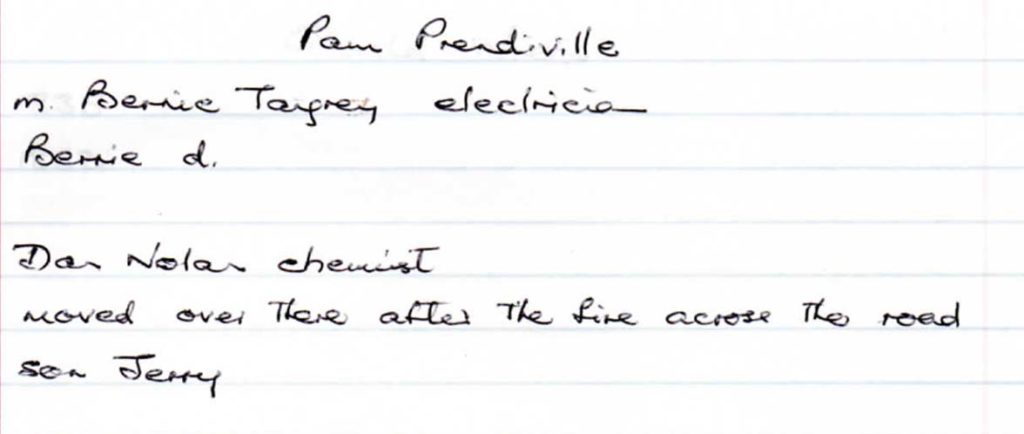 Pam Prendiville
m. Bernie Tangney electrician
Bernie d.
Dan Nolan chemist
moved over there after the fire across the road
son Jerry